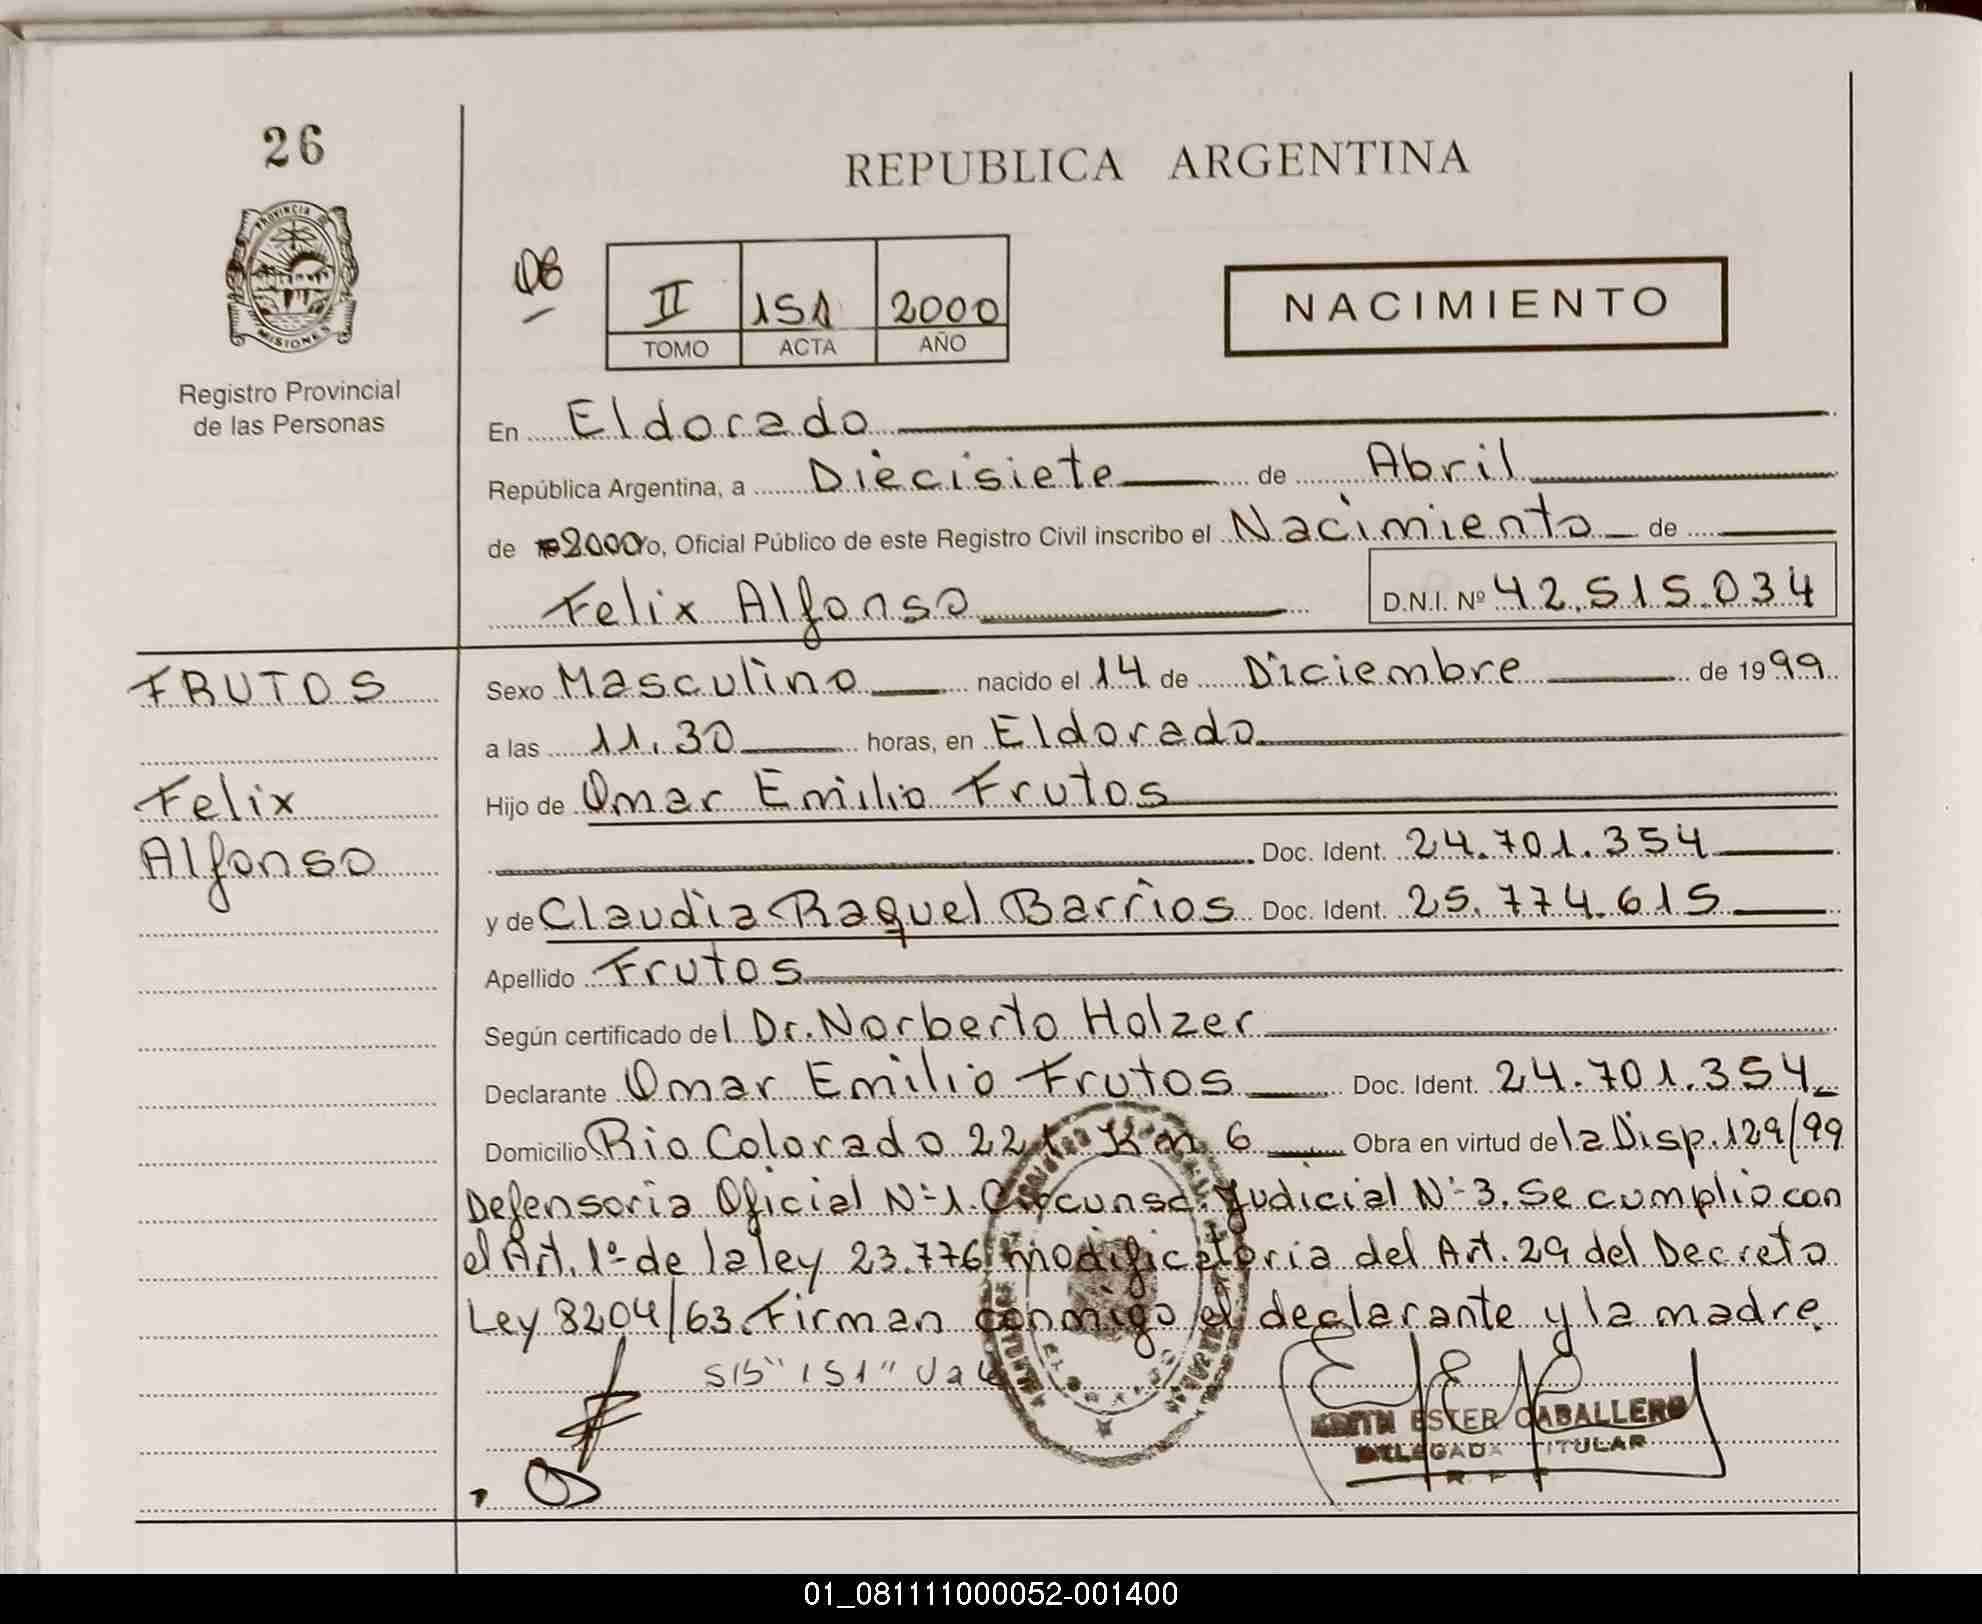 26
REPUBLICA ARGENTINA
PROVINCIA DE
MISIONES
II 151 2000
TOMO ACTA AÑO
NACIMIENTO
Registro Provincial
de las Personas
En Eldorado
República Argentina, a Diecisiete de Abril
de 2000 yo, Oficial Público de este Registro Civil inscribo el Nacimiento de
Felix Alfonso D.N.I. Nº 42.515.034
FRUTOS
Felix
Alfonso
Sexo Masculino nacido el 14 de Diciembre de 1999
a las 11.30 horas, en Eldorado
Hijo de Omar Emilio Frutos
Doc. Ident. 24.701.354
y de Claudia Raquel Barrios Doc. Ident. 25.774.615
Apellido Frutos
Según certificado del Dr. Norberto Holzer
Declarante Omar Emilio Frutos Doc. Ident. 24.701.354
Domicilio Rio Colorado 22 Km 6 Obra en virtud de la Disp. 129/99
Defensoria Oficial Nº 1. Circunsc. Judicial Nº 3. Se cumplio con
el Art. 1º de la ley 23.776 modificatoria del Art. 29 del Decreto
Ley 8204/63. Firman conmigo el declarante y la madre.
S/B "151" Vale
EDITH ESTER CABALLERO
DELEGADA TITULAR
R. P. P
01_081111000052-001400